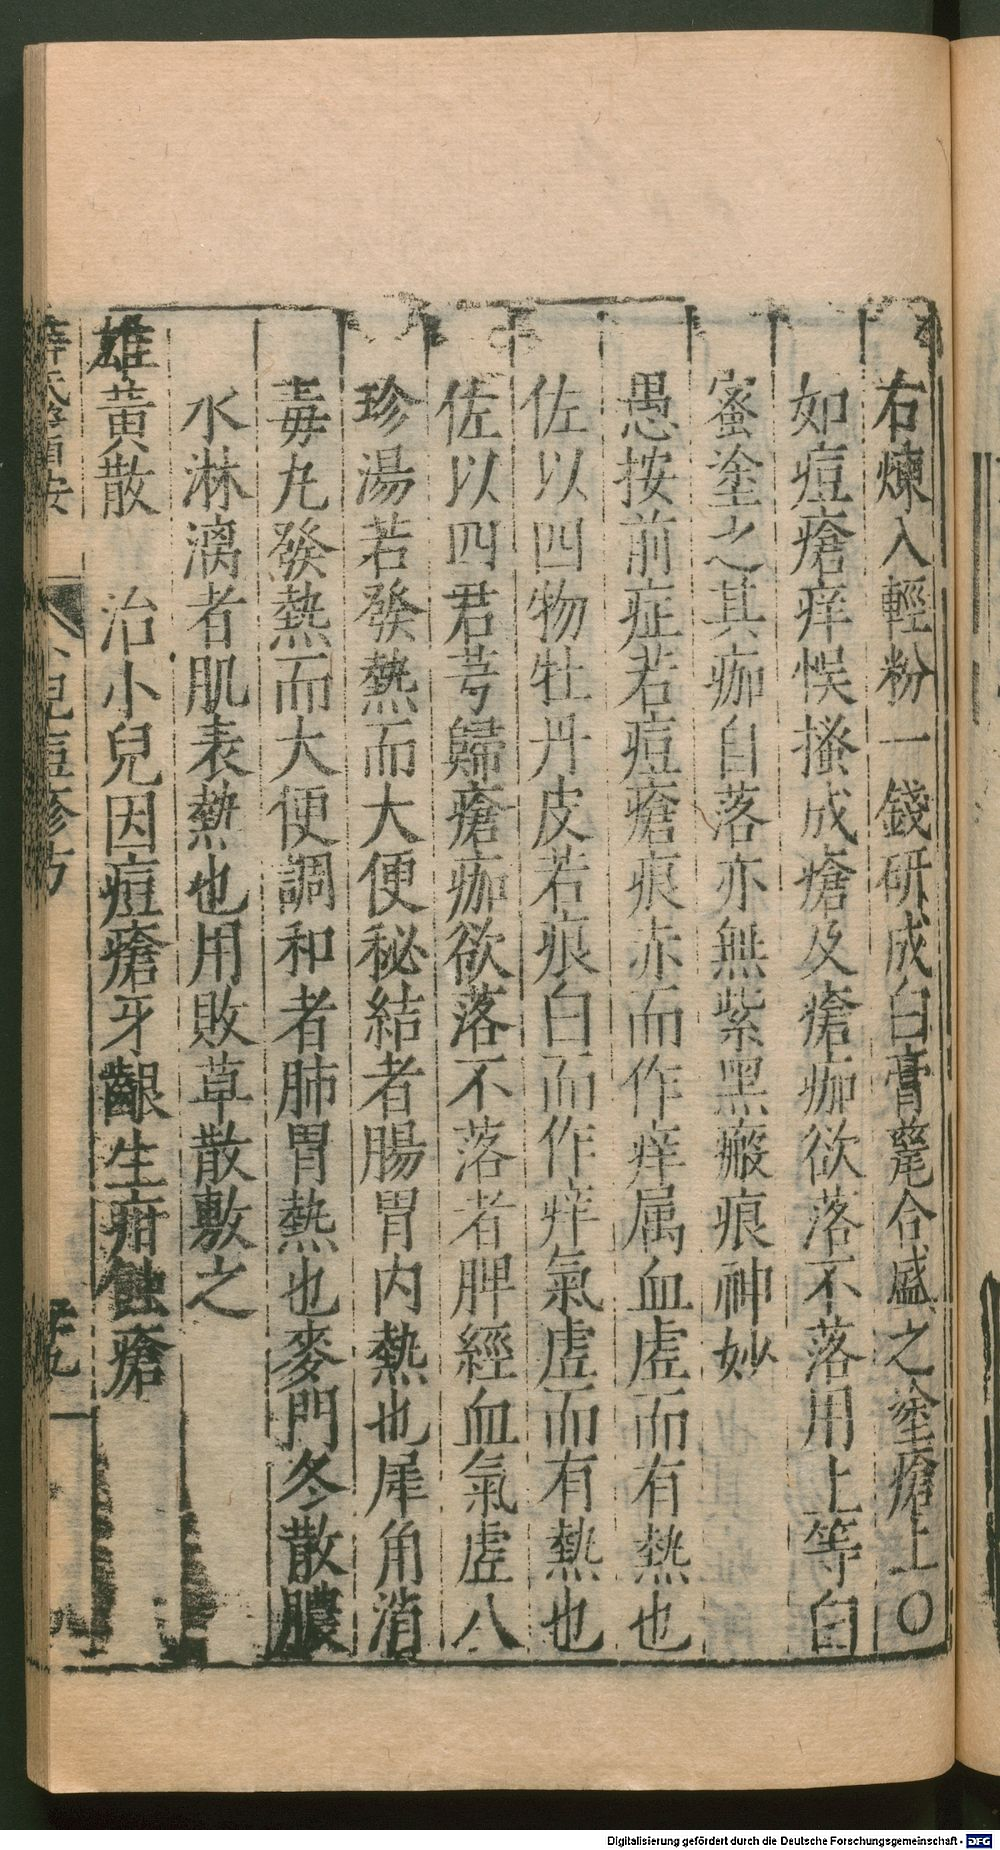 右煉入輕粉一錢研成白膏薎合盛之塗瘡上○
如痘瘡痒悞搔成瘡及瘡痂欲落不落用上等白
蜜塗之其痂自落亦無紫黑瘢痕神妙
愚按前症若痘瘡痕赤而作痒属血虚而有熱也
佐以四物牡丹皮若痕白而作痒氣虚而有熱也
佐以四君芎歸瘡痂欲落不落者脾經血氣虚八
珍湯若發熱而大便秘結者腸胃内熱也犀角消
毒丸發熱而大便調和者肺胃熱也麥門冬散膿
水淋漓者肌表熱也用敗草散敷之
雄黃散 治小兒因痘瘡牙齦生疳蝕瘡
小兒痘疹方
Digitalisierung gefördert durch die Deutsche Forschungsgemeinschaft - DFG